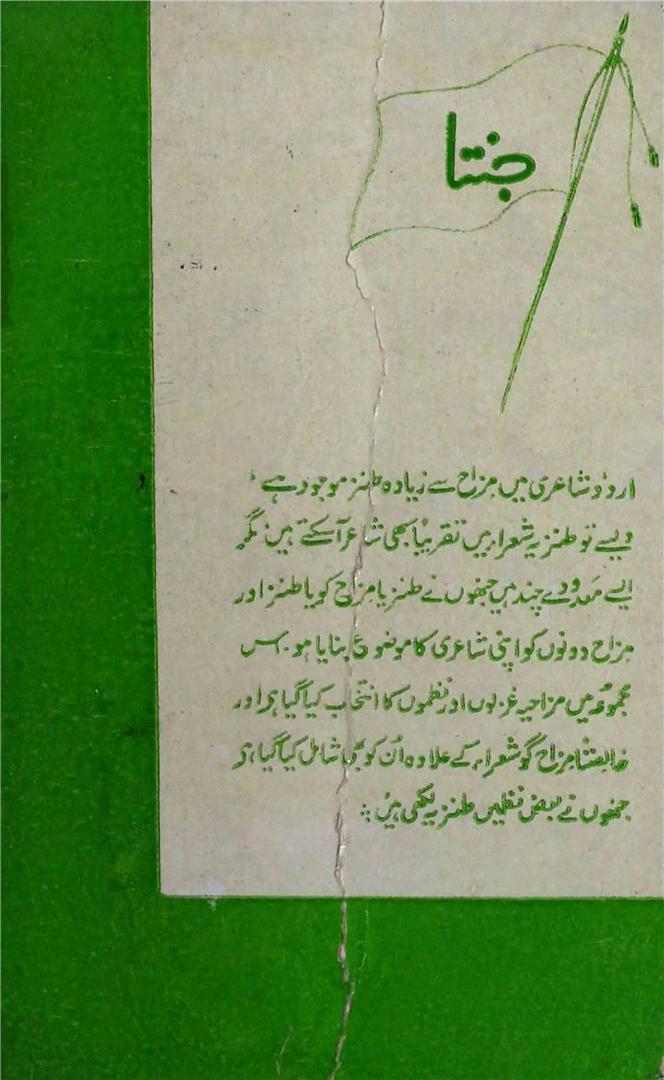 جنتا
اردو شاعری میں مزاح سے زیادہ طنز موجود ہے،
ویسے تو طنزیہ شعراء میں تقریباً بھی شاعر آسکتے ہیں مگر
ایسے معدودے چند ہیں جنھوں نے طنز یا مزاح کو یا طنز اور
مزاح دونوں کو اپنی شاعری کا موضوع بنایا ہو۔ اس
مجموعہ میں مزاحیہ غزلوں اور نظموں کا انتخاب کیا گیا ہو اور
خالصتاً مزاح گو شعراء کے علاوہ اُن کو بھی شامل کیا گیا ہو
جنھوں نے بعض نظمیں طنزیہ لکھی ہیں؛